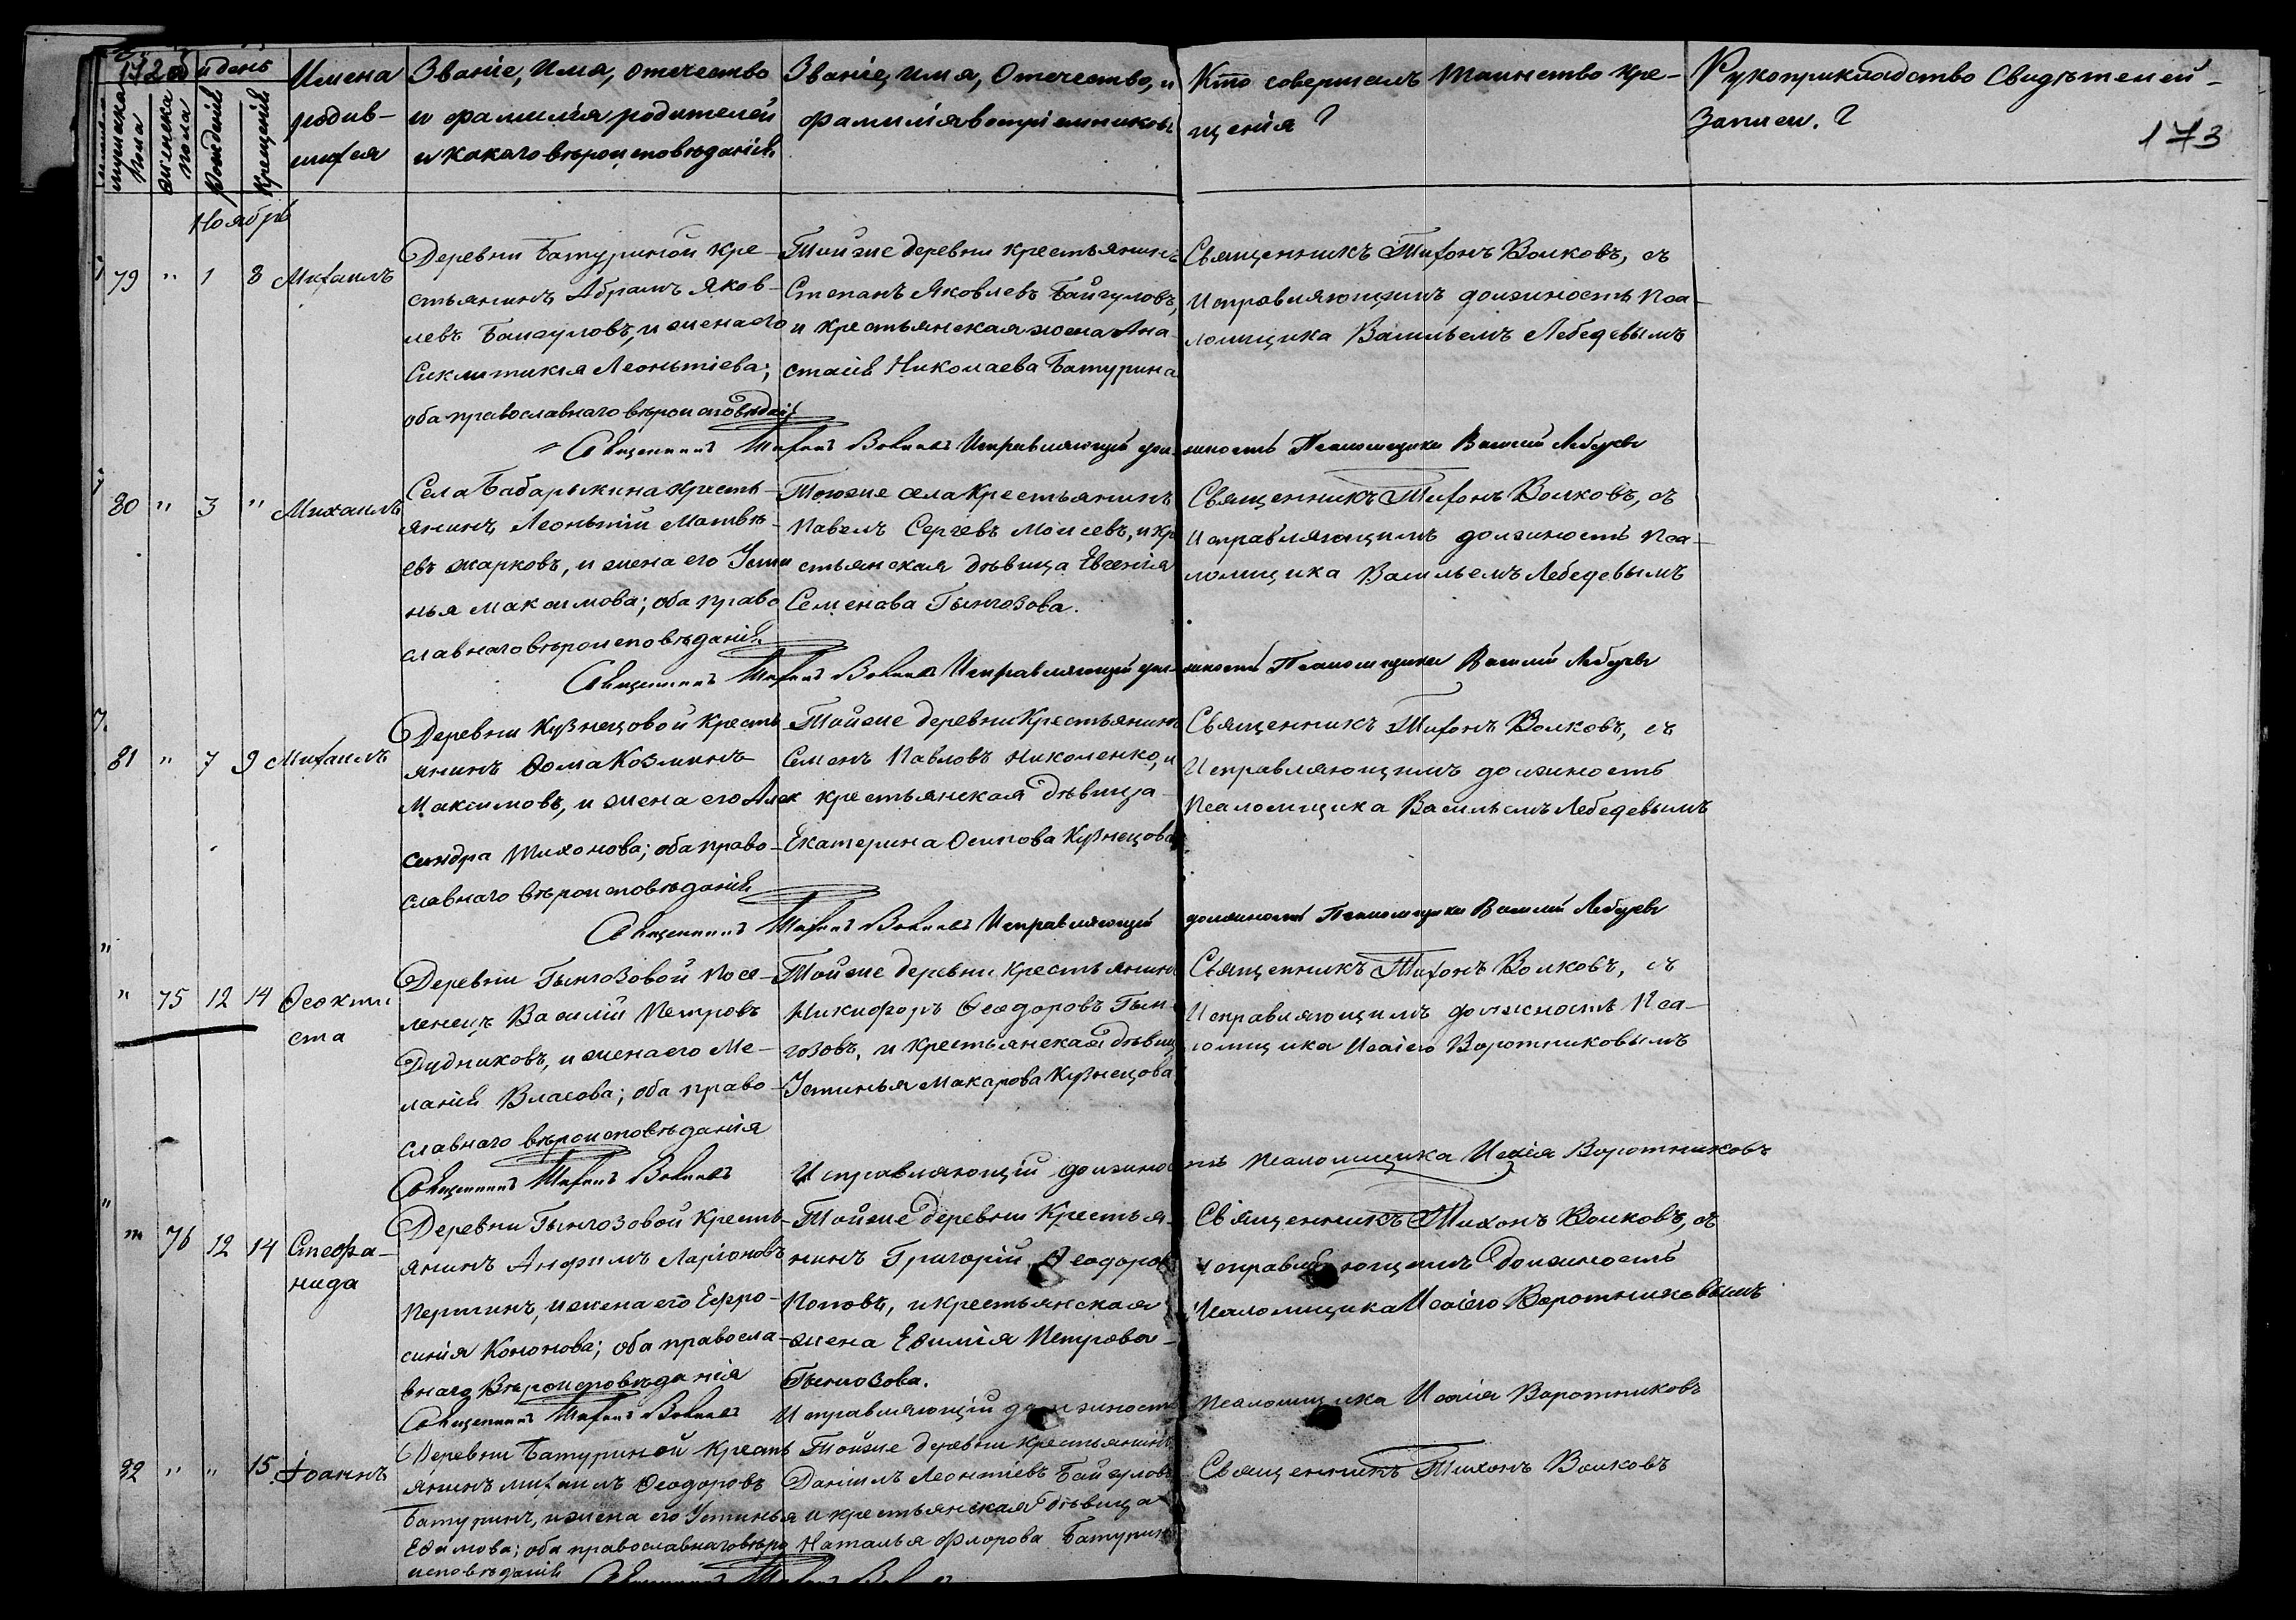 и день
мужеска пола
женска пола
Рожденія
Крещенія
Имена
родив-
шихся
Званіе, Имя, Отечество
и фамилія родителей
и какого вѣроисповѣданія
Званіе, имя, Отечество, и
фамилія воспріемниковъ
Кто совершалъ таинство кре-
щенія?
Рукоприкладство свидѣтелей
записи.?
173
Ноябрь
79 " 1 8 Михаилъ
Деревни Батуриной кре-
стьянинъ Абрамъ Яков-
левъ Байгуловъ, и жена его
Сиклитикія Леонтіева;
оба православнаго вѣроисповѣданія
Тойже деревни крестьянинъ
Степанъ Яковлевъ Байгуловъ,
и крестьянская жена Ана-
стасія Николаева Батурина
Священникъ Тихонъ Волковъ, съ
Исправляющимъ должность Пса-
ломщика Васильемъ Лебедевымъ
Священникъ Тихонъ Волковъ Исправляющій должность Псаломщика Василій Лебедевъ
80 " 3 " Михаилъ
Села Бабарыкина кресть-
янинъ Леонтій Матвѣ-
евъ Жарковъ, и жена его Усти
нья Максимова; оба право
славнаго вѣроисповѣданія
Тогоже села Крестьянинъ
Павелъ Сергѣевъ Моисеевъ, и кр
стьянская дѣвица Евгенія
Семенова Гынгозова.
Священникъ Тихонъ Волковъ, съ
Исправляющимъ должность Пса-
ломщика Васильемъ Лебедевымъ
Священникъ Тихонъ Волковъ Исправляющій должность Псаломщика Василій Лебедевъ
81 " 7 9 Михаилъ
Деревни Кузнецовой Кресть
янинъ Ѳома Козминъ
Максимовъ, и жена его Алек
сандра Тихонова; оба право-
славнаго вѣроисповѣданія
Тойже деревни Крестьянинъ
Семенъ Павловъ Николенко, и
крестьянская дѣвица
Екатерина Осипова Кузнецова
Священникъ Тихонъ Волковъ, съ
Исправляющимъ должность
Псаломщика Васильемъ Лебедевымъ
Священникъ Тихонъ Волковъ Исправляющій должность Псаломщика Василій Лебедевъ
" 75 12 14 Ѳеокти
ста
Деревни Гынгозовой Посе-
ленецъ Василій Петровъ
Дудниковъ, и жена его Ме-
ланія Власова; оба право-
славнаго вѣроисповѣданія
Тойже деревни крестьянинъ
Никифоръ Ѳеодоровъ Гын
гозовъ, и крестьянская дѣвица
Устинья Макарова Кузнецова
Священникъ Тихонъ Волковъ, съ
Исправляющимъ должность Пса-
ломщика Исаіею Воротниковымъ
Священникъ Тихонъ Волковъ Исправляющій должность Псаломщика Исаія Воротниковъ
" 76 12 14 Стефа-
нида
Деревни Гынгозовой Кресть-
янинъ Анфимъ Ларіоновъ
Першинъ, и жена его Ефро-
синія Кононова; оба правосла-
внаго Вѣроисповѣданія
Тойже деревни Крестья-
нинъ Григорій Ѳеодоровъ
Поповъ, и крестьянская
жена Евимія Петрова
Гынгозова.
Священникъ Тихонъ Волковъ, съ
исправляющимъ должность
Псаломщика Исаіею Воротниковымъ
Священникъ Тихонъ Волковъ Исправляющій должность Псаломщика Исаія Воротниковъ
82 " " 15 Іоаннъ
Деревни Батуриной Кресть
янинъ Михаилъ Ѳеодоровъ
Батуринъ, и жена его Устинья
Евимова; оба православнаго вѣро
исповѣданія
Тойже деревни крестьянинъ
Даніилъ Леонтіевъ Байгуловъ
и крестьянская дѣвица
Наталья Флорова Батурин
Священникъ Тихонъ Волковъ
Священникъ Тихонъ Волковъ